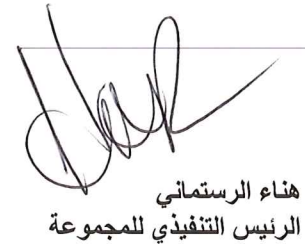 هناء الرستماني
الرئيس التنفيذي للمجموعة